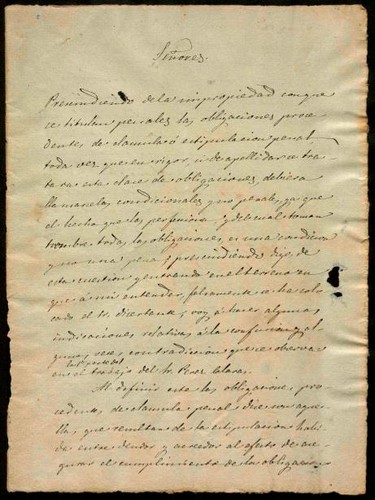 Señores.
Prescindiendo de la impropiedad con que
se titulan penales las obligaciones proce
dentes de clausula ó estipulacion penal
toda vez que en rigor, si de apellidar se tra
tara esta clase de obligaciones debiera
llamarselas condicionales y no penales, ya que
el hecho que las perfecciona y del cual toman
nombre todas las obligaciones, es una condicion
y no una pena; prescindiendo, digo, de
esta cuestion y entrando en el terreno en
que á mi entender, falsamente se ha colo
cado el Sr. disertante, voy á hacer algunas
indicaciones relativas á la confusion y al
gunas veces contradiccion que se observa
en el trabajo del Sr.
Al definir este las obligaciones proce
dentes de clausula penal dice son aque
llas que resultan de la estipulacion habi
da entre deudor y acreedor al efecto de ase
gurar el cumplimiento de la obligacion